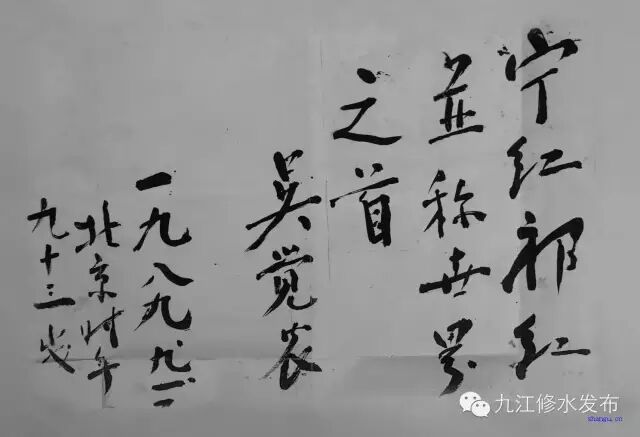 宁红祁红
並称世界
之首
吴觉农
一九八九.九.二
北京时年
九十三岁
九江修水发布
zhangu.cn